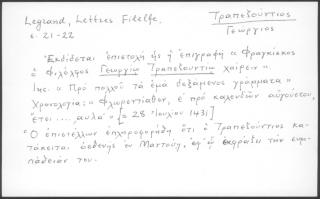 Legrand, Lettres Filelfe,
σ. 21-22
Τραπεζούντιος
Γεώργιος
Ἐκδίδεται ἐπιστολή ἧς ἡ ἐπιγραφή «Φραγκίσκος
ὁ Φιλέλφος Γεωργίῳ Τραπεζουντίῳ χαίρειν».
Inc. «Πρό πολλοῦ τά ἐμά δεξάμενος γράμματα»
Χρονολογία: «Φλωρεντίαθεν, πρό καλενδῶν αὐγούστου,
ἔτει ...., αυλα´» [= 28 Ἰουλίου 1431]
Ὁ ἐπιστέλλων ἐπληροφορήθη ὅτι ὁ Τραπεζούντιος κα-
τάκειται ἀσθενής ἐν Μαντούῃ, ἐφ' ᾧ ἐκφράζει τήν συμ-
πάθειάν του.